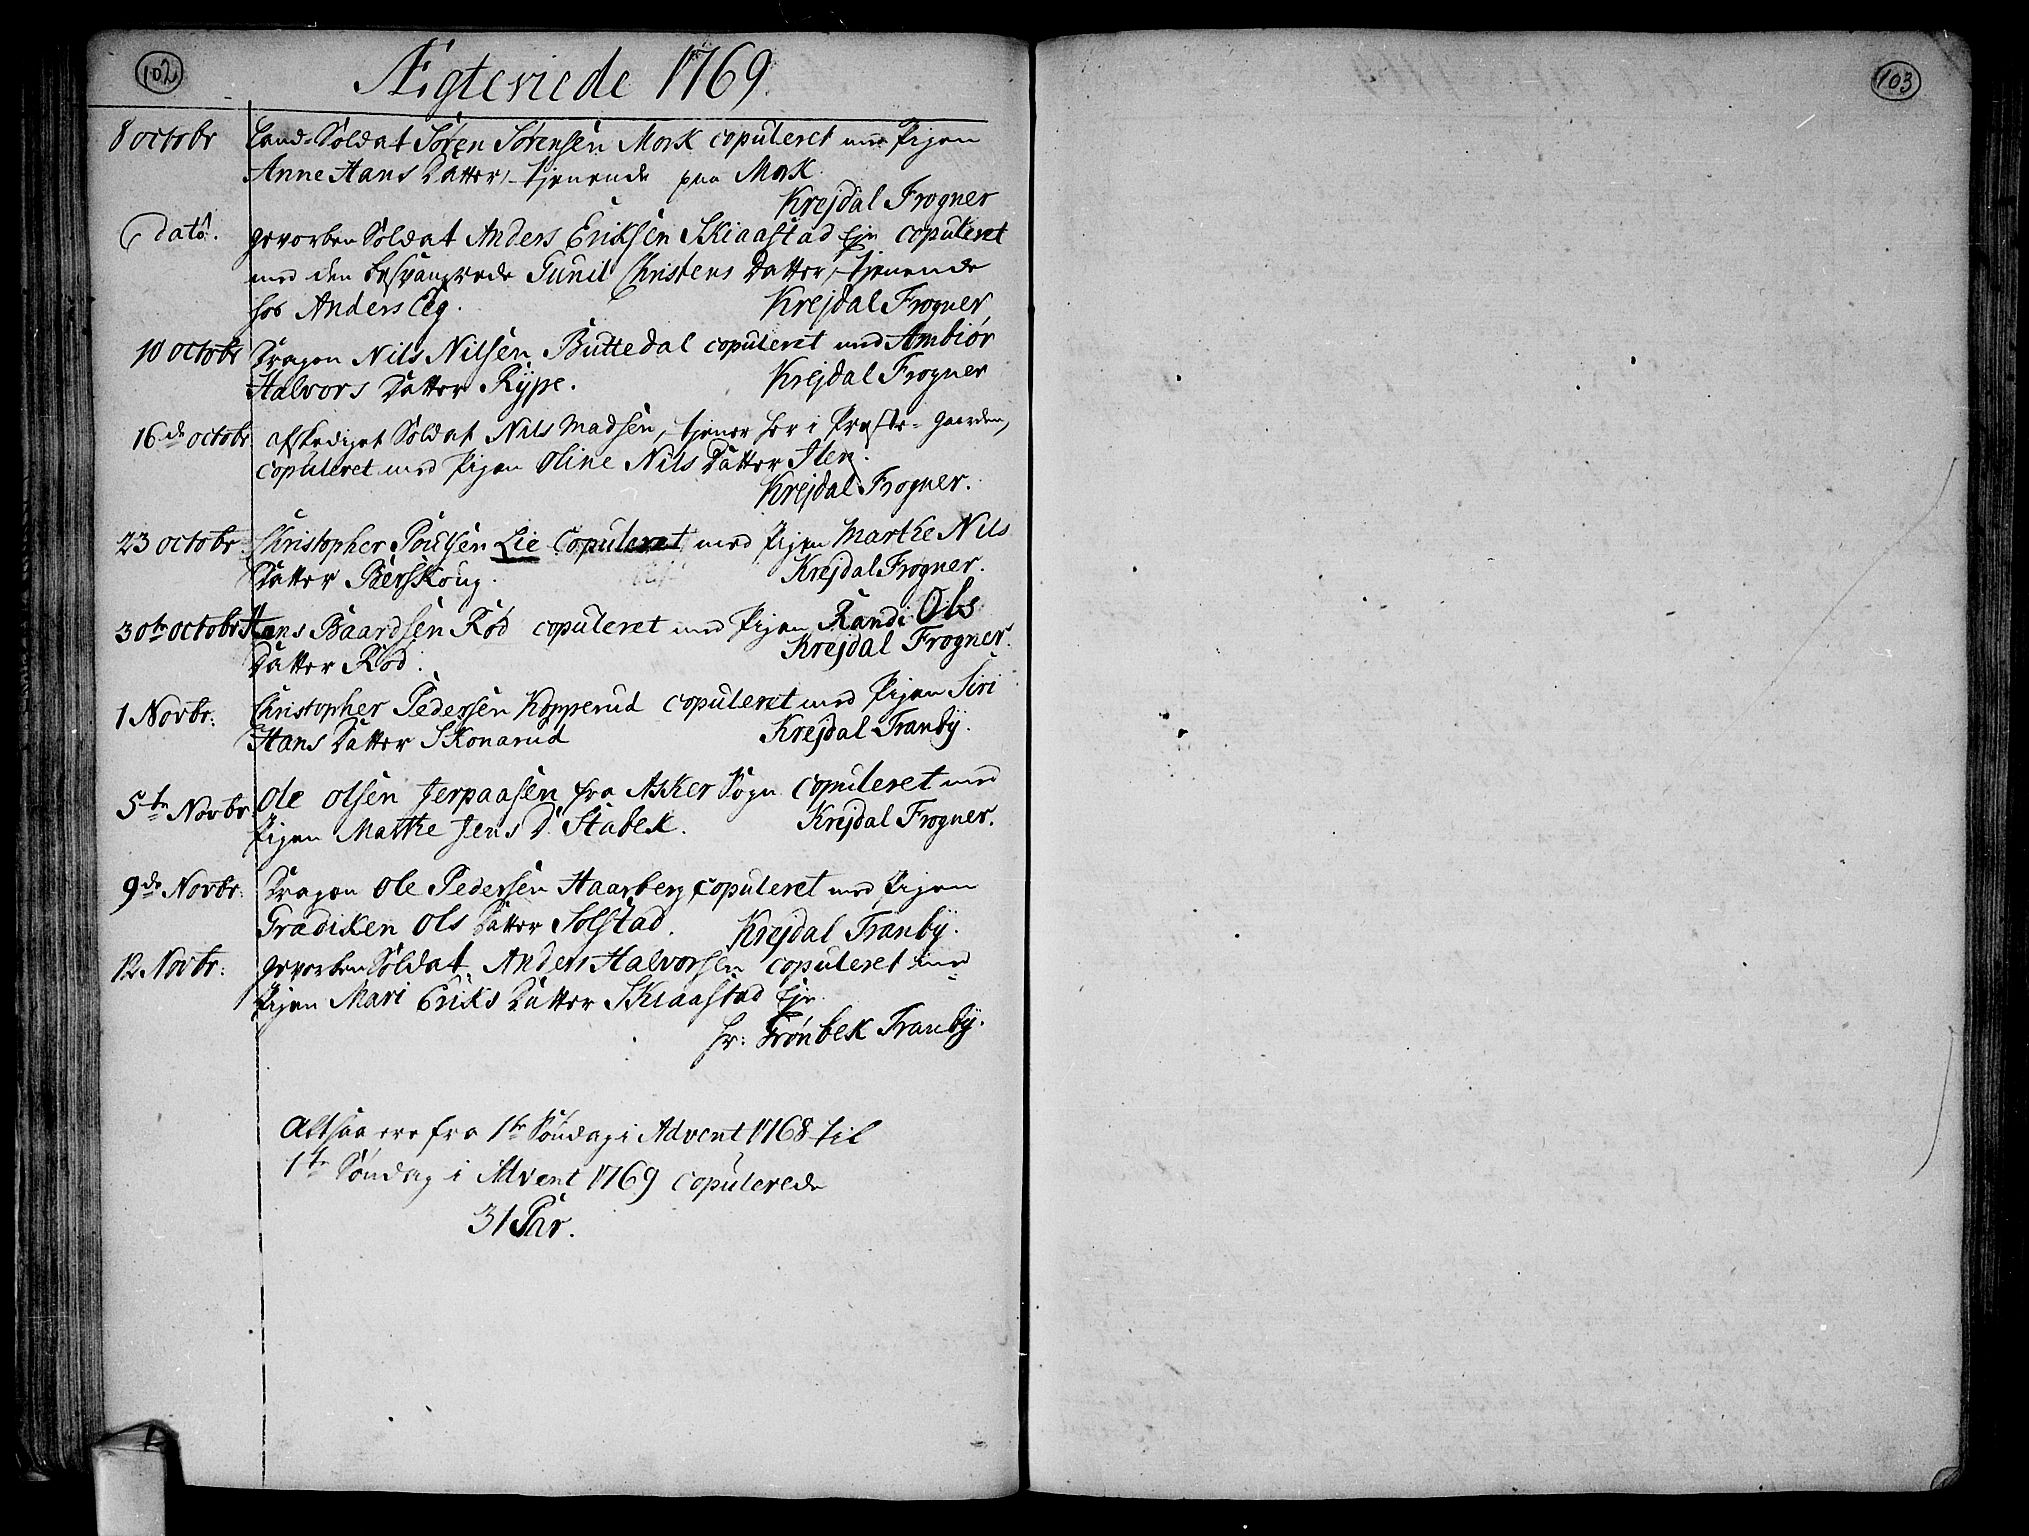 102
Ægteviede 1769.
8 octobr Land-Soldat Søren Sørensen Mork copuleret med Pigen
Anne Hans Datter, tjenende paa Mork.
Krejdal Frogner
dato. gevorben Soldat Anders Eriksen Skiaastad Eje copuleret
med den besvangrede Gunil Christens Datter, tjenende
hos Anders Eeg.
Krejdal Frogner
10 octobr Dragon Nils Nilsen Buttedal copuleret med Ambiør
Halvors Datter Rype.
Krejdal Frogner
16de octobr afskediget Soldat Nils Madsen, tjener her i Præste-Gaarden,
copuleret med Pigen Oline Nils Datter Ilen.
Krejdal Frogner.
23 octobr Christopher Poulsen Lie copuleret med Pigen Marthe Nils
Datter Berskoug.
Krejdal Frogner.
30te octobr Hans Baardsen Rød copuleret med Pigen Randi Ols
Datter Rød.
Krejdal Frogner.
1 Novbr: Christopher Pedersen Kopperud copuleret med Pigen Siri
Hans Datter Skonarud
Krejdal Tranby.
5te Novbr Ole Olsen Jerpaasen fra Asker Sogn copuleret med
Pigen Marthe Jens D. Stabek.
Krejdal Frogner.
9de Novbr: Dragon Ole Pedersen Haarberg copuleret med Pigen
Gradiken Ols Datter Solstad.
Krejdal Tranby.
12 Novbr: gevorben Soldat Anders Halvorsen copuleret med
Pigen Mari Eriks Datter Skiaastad Eje.
hr: Trønbek Tranby.
Altsaa ere fra 1te Søndag i Advent 1768 til
1te Søndag i Advent 1769 copulerede
31 Par.
103